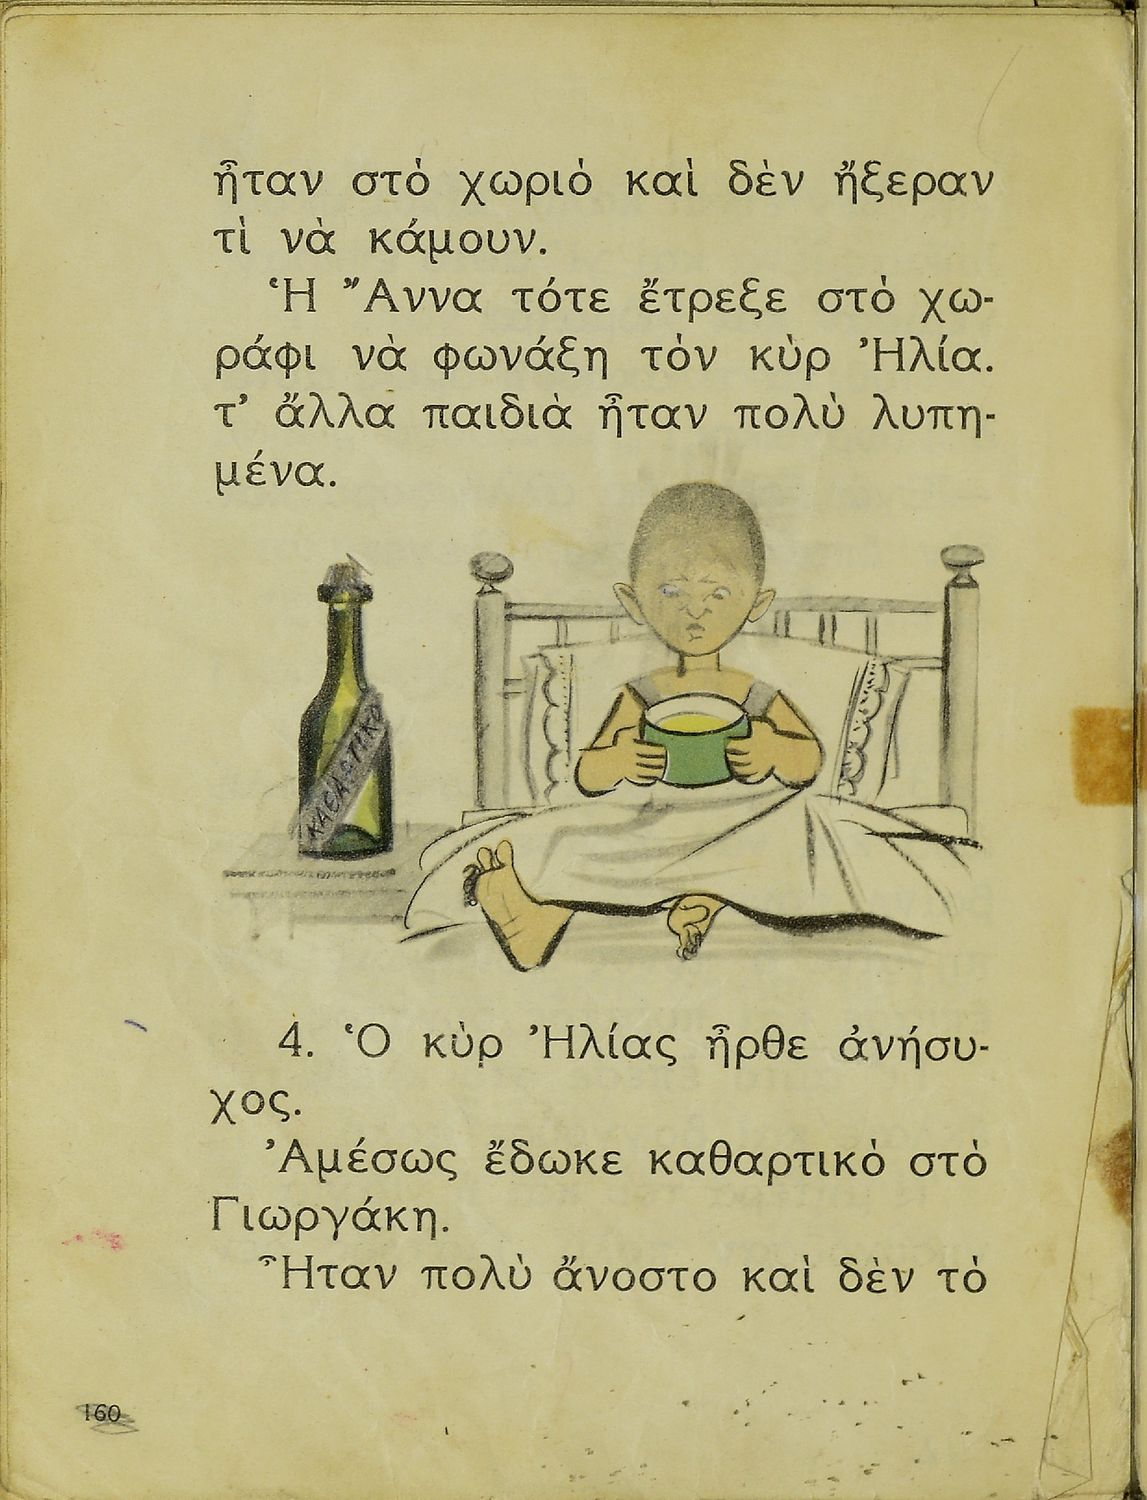 ἦταν στὸ χωριὸ καὶ δὲν ἤξεραν
τὶ νὰ κάμουν.
Ἡ Ἄννα τότε ἔτρεξε στὸ χω-
ράφι νὰ φωνάξη τὸν κὺρ Ἠλία.
τ’ ἄλλα παιδιὰ ἦταν πολὺ λυπη-
μένα.
ΚΑΘΑΡΤΙΚΟ
4. Ὁ κὺρ Ἠλίας ἦρθε ἀνήσυ-
χος.
Ἀμέσως ἔδωκε καθαρτικὸ στὸ
Γιωργάκη.
Ἦταν πολὺ ἄνοστο καὶ δὲν τὸ
160